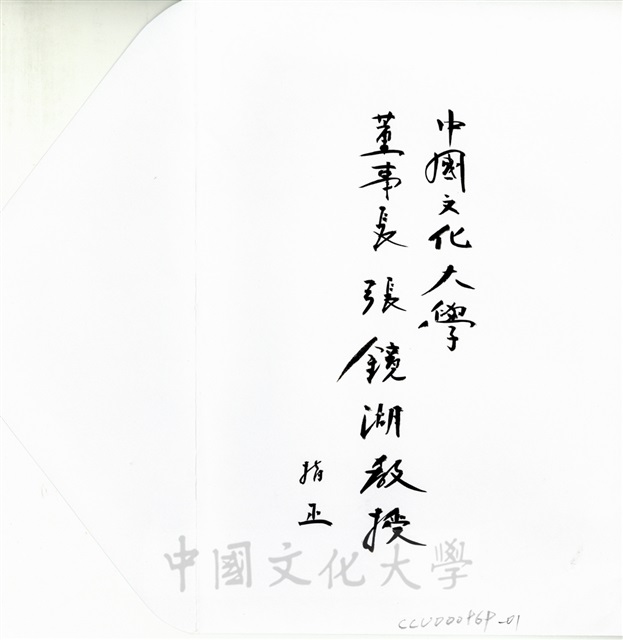 中國文化大學
董事長張鏡湖教授
指正
中國文化大學